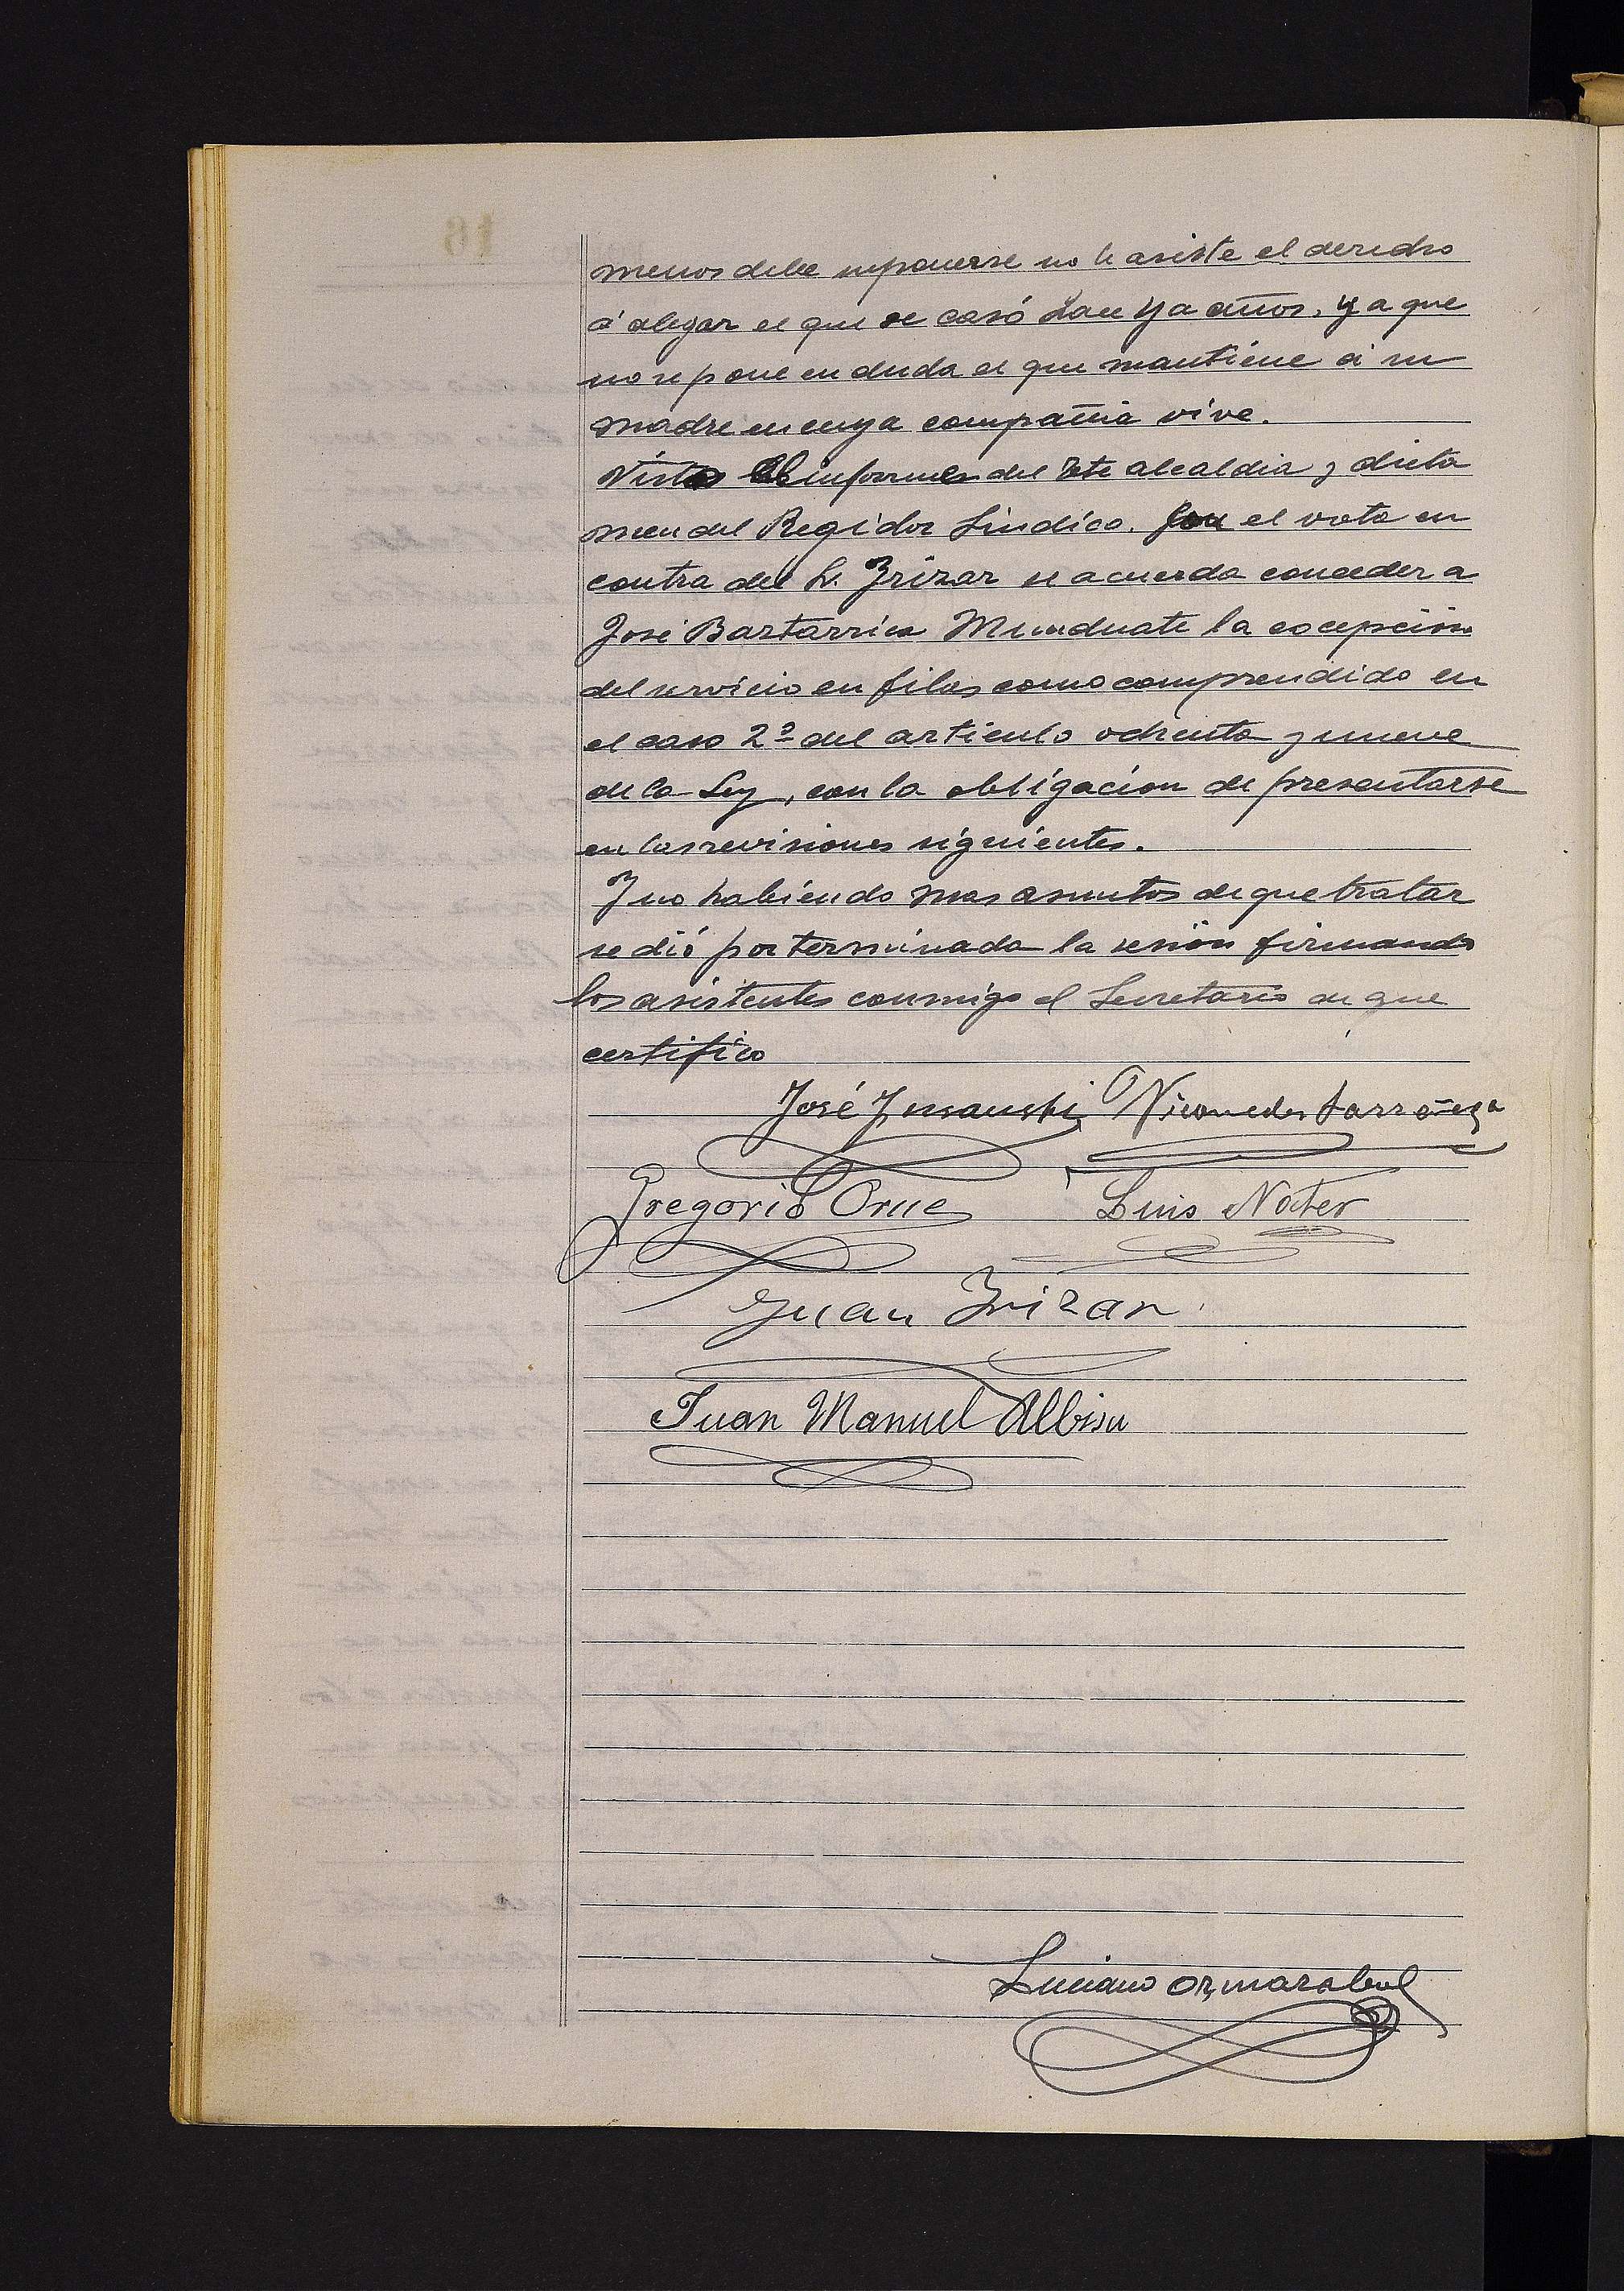 menos debe suponerse no le asiste el derecho
á alegar el que se casó hace ya años, y a que
no se pone en duda el que mantiene á su
madre en cuya compañia vive.
Vistos informes del Tte alcaldia y dicta
men del Regidor Sindico. Con el voto en
contra del Sr. Irizar se acuerda conceder a
José Bartarrica Munduate la excepcion
del servicio en filas como comprendido en
el caso 2º del articulo ochenta y nueve
de la Ley, con la obligacion de presentarse
en las revisiones siguientes.
Y no habiendo mas asuntos de que tratar
se dió por terminada la sesión firmando
los asistentes conmigo el Secretario de que
certifico
José Insausti Nicomedes Larrañaga
Gregorio Orue Luis Noter
Juan Irizar
Juan Manuel Albisu
Luciano Ormazabal